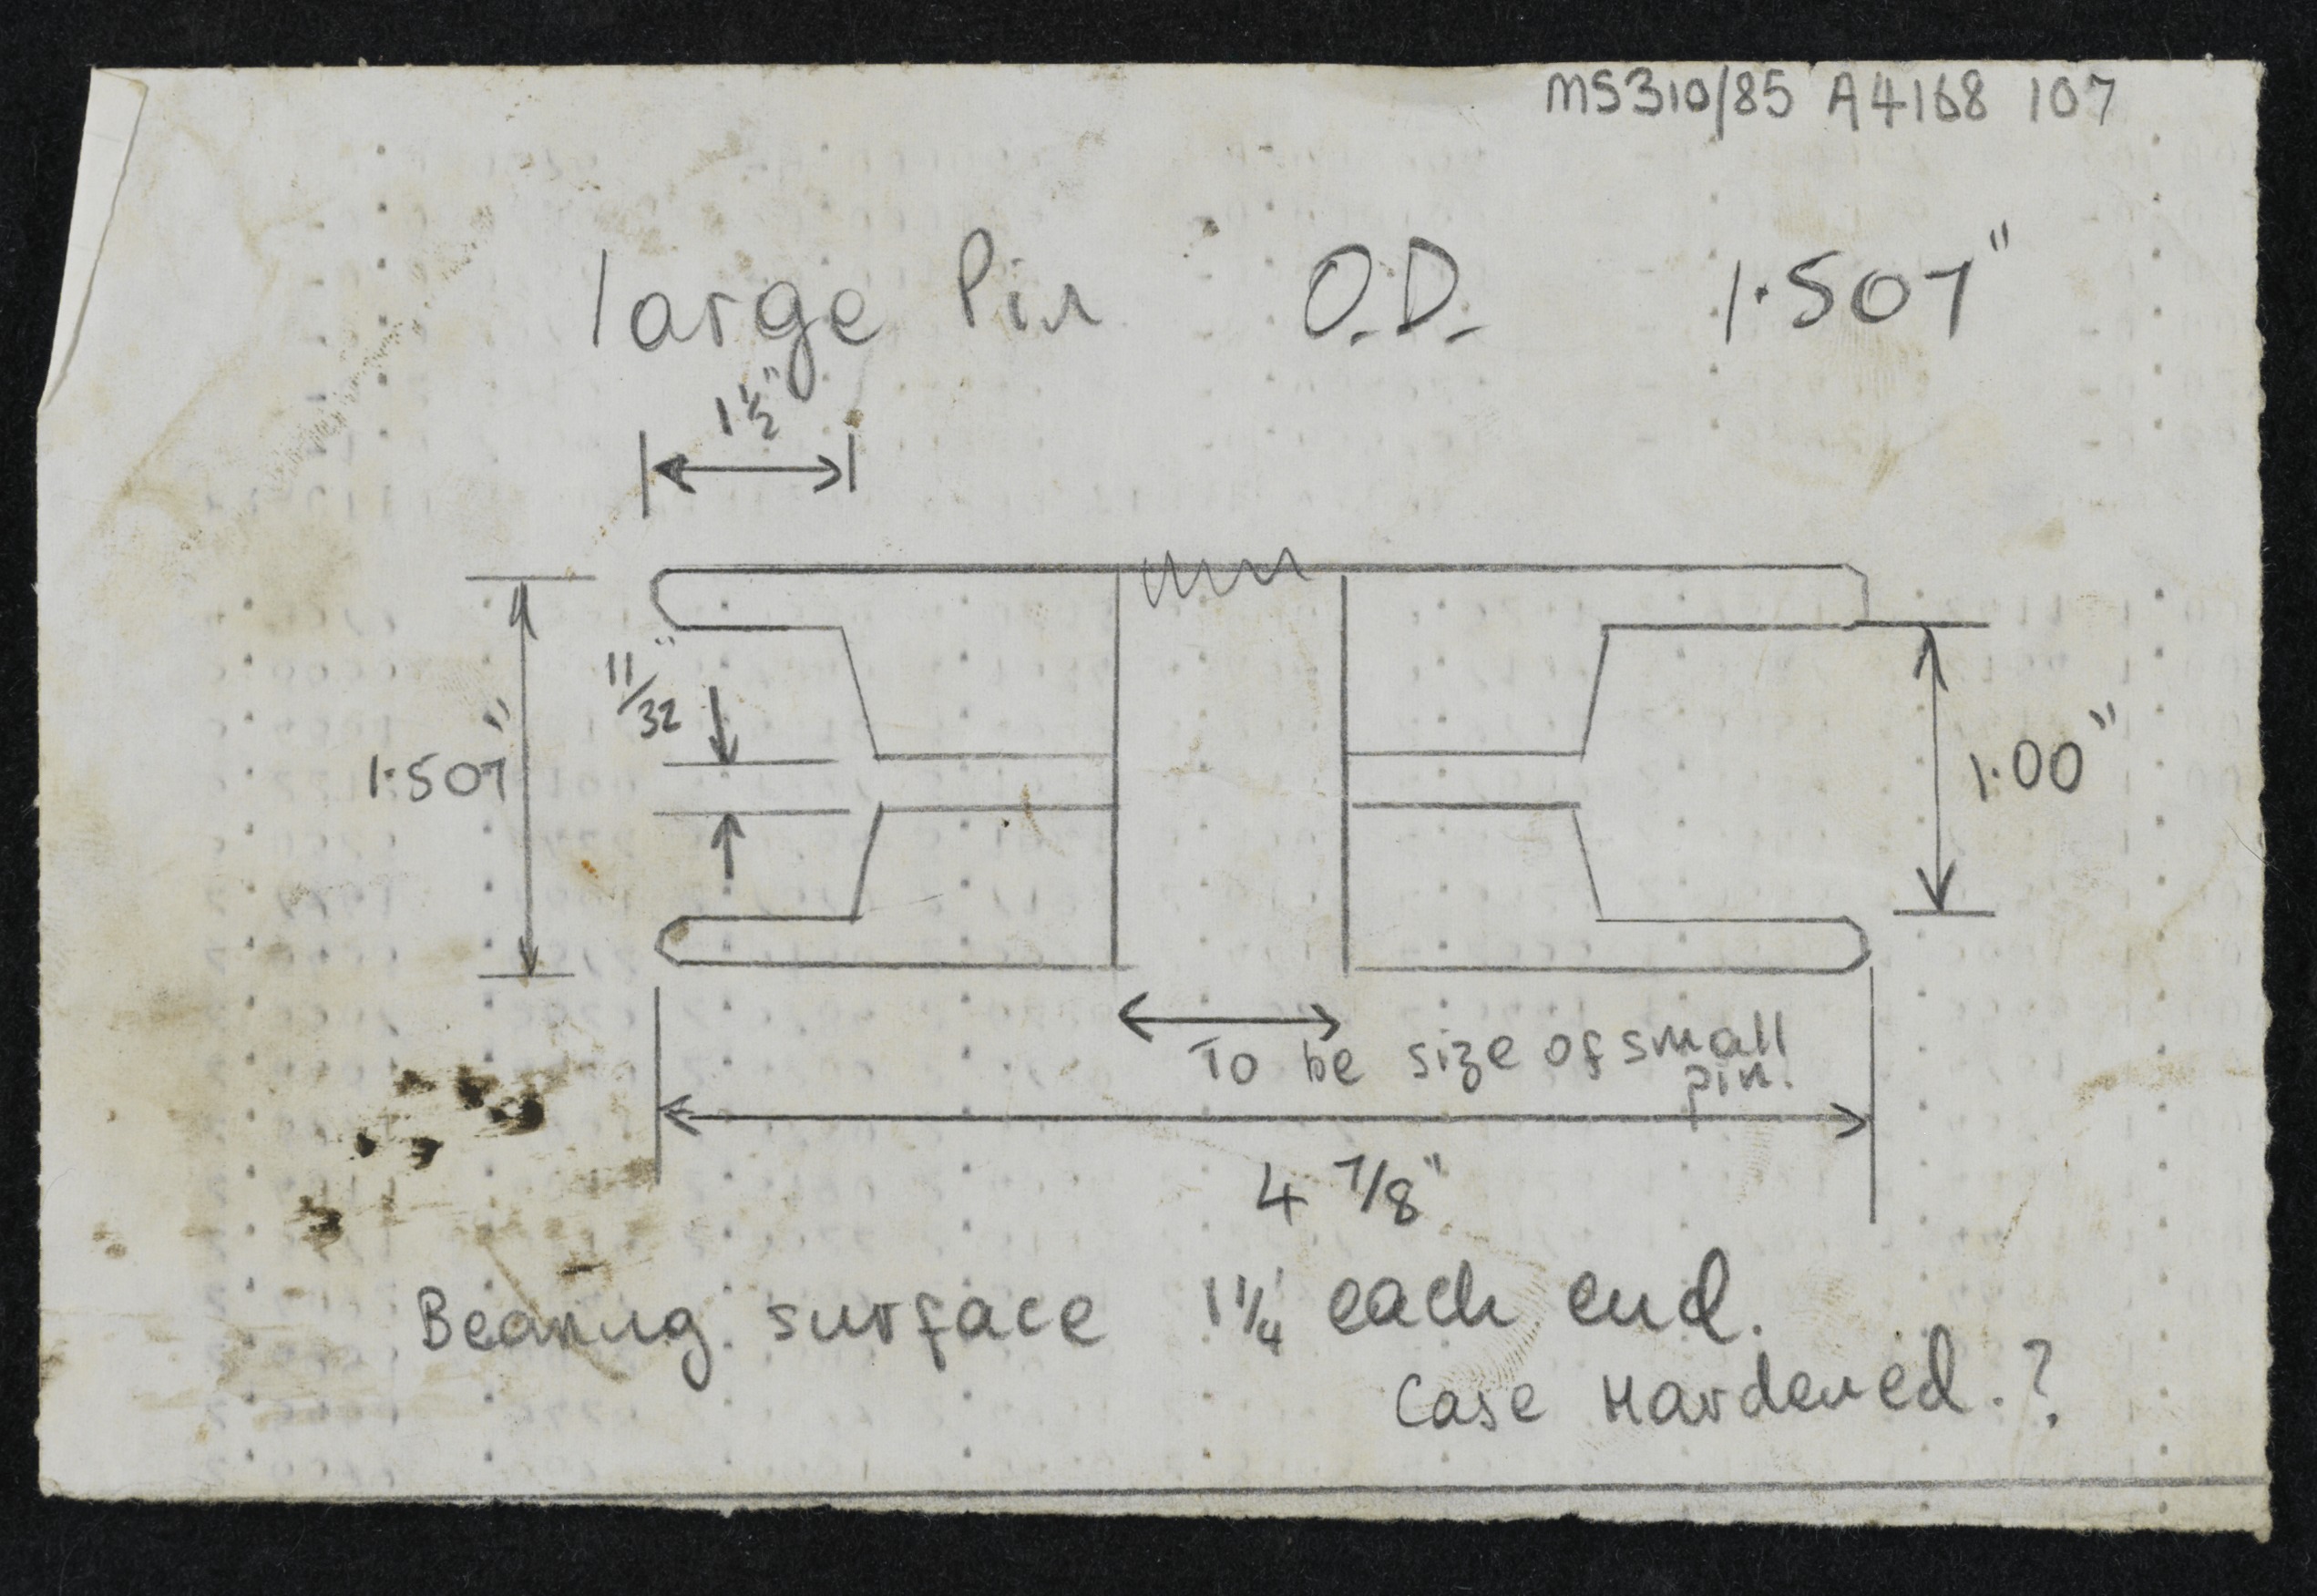 MS310/85 A4168 107
large Pin O.D. 1.507"
1 1/2"
11/32"
1.507"
1.00"
To be size of small
pin.
4 7/8"
Bearing surface 1 1/4' each end.
Case Hardened.?